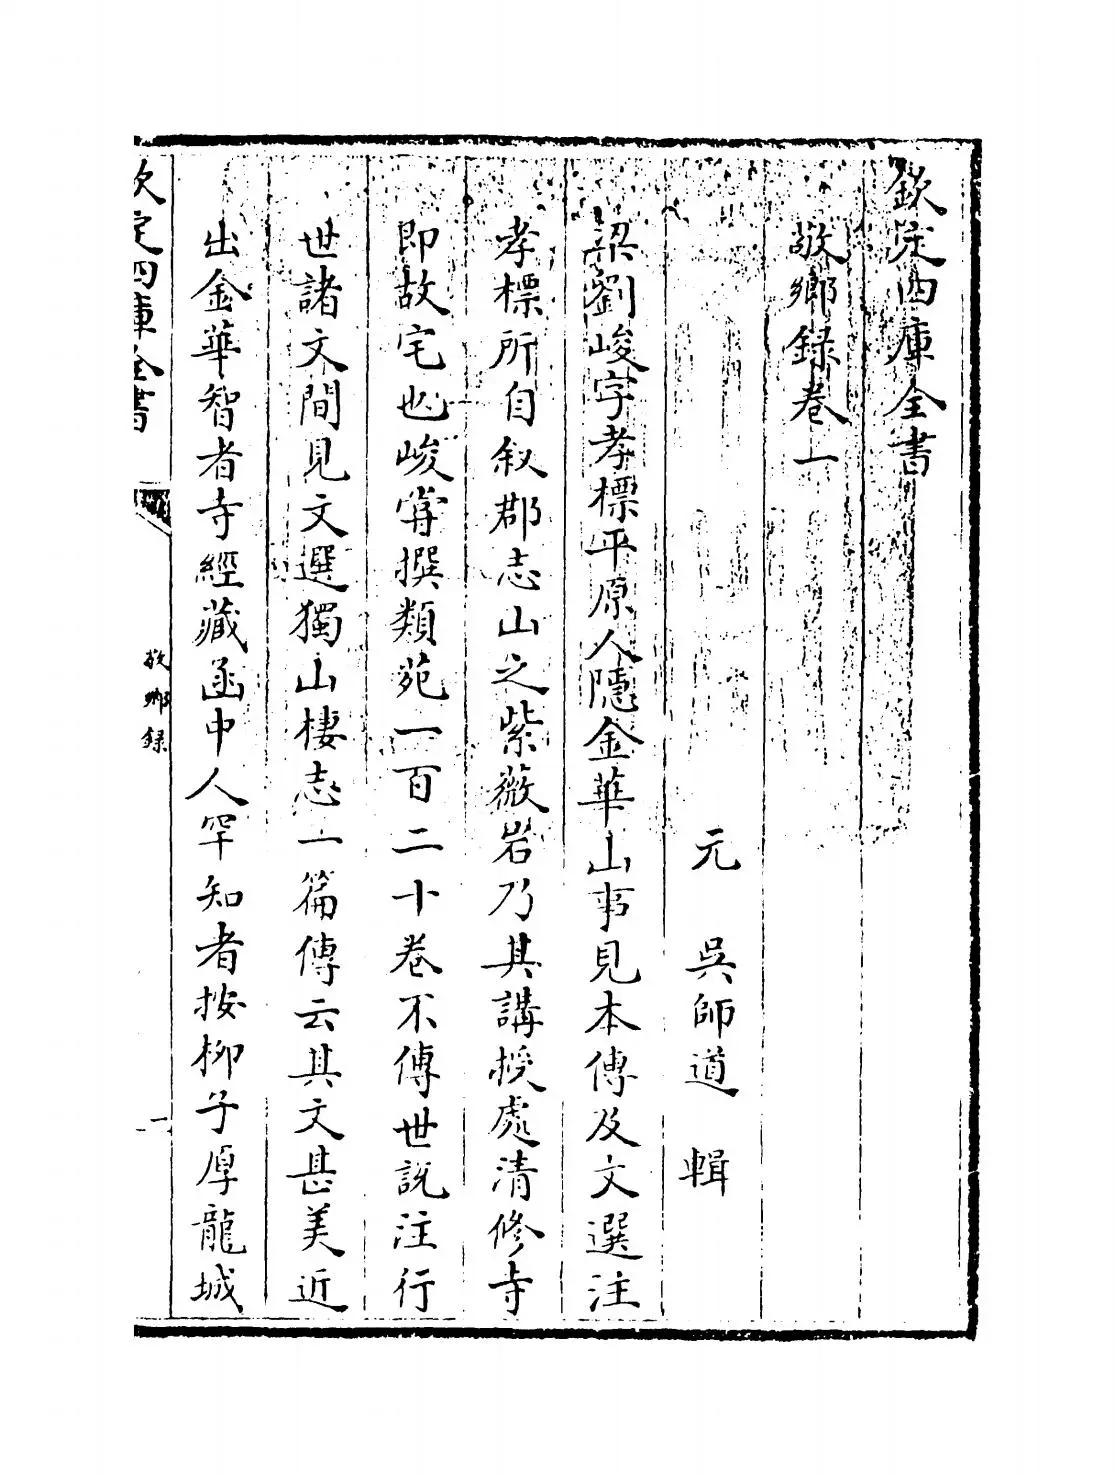 欽定四庫全書
敬鄉録卷一
元 吳師道 輯
梁劉峻字孝標平原人隱金華山事見本傳及文選注
孝標所自叙郡志山之紫薇岩乃其講授處清修寺
即故宅也峻甞撰類苑一百二十卷不傳世説注行
世諸文間見文選獨山棲志一篇傳云其文甚美近
出金華智者寺經藏函中人罕知者按栁子厚龍城
欽定四庫全書
敬鄉録
一